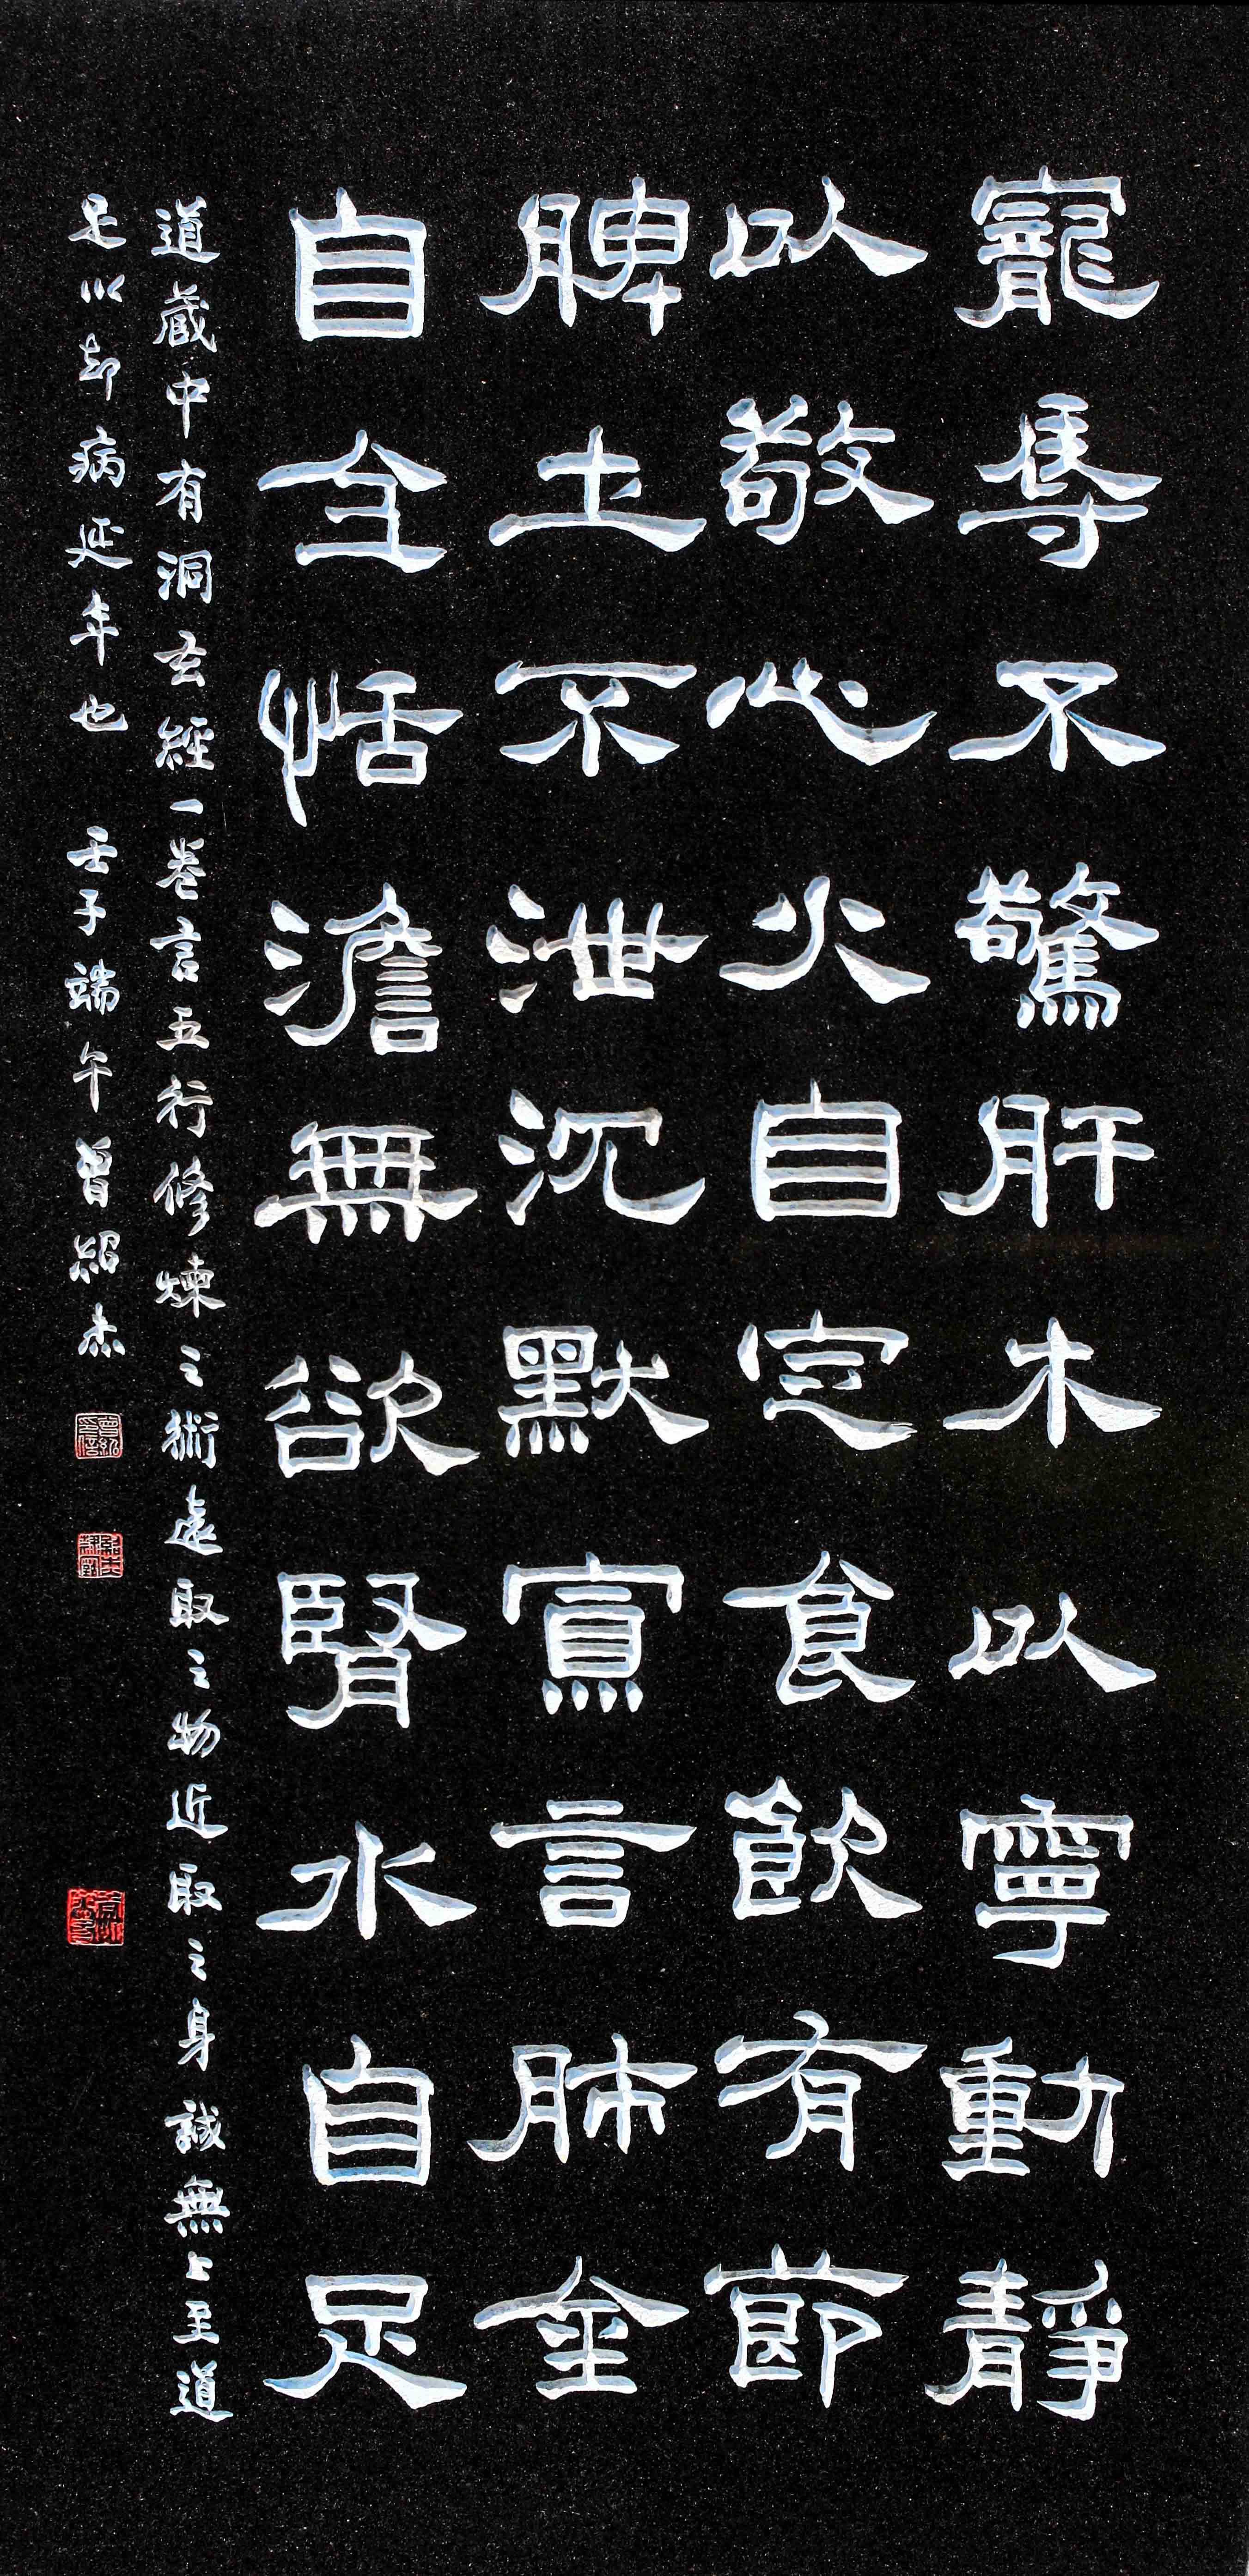 寵辱不驚肝木以寧動靜
以敬心火自定食飲有節
脾土不泄沉默寡言肺金
自全恬澹無欲腎水自足
道藏中有洞玄經一卷言五行修煉之術遠取之物近取之身誠無上至道
足以却病延年也 壬子端午曾紹杰